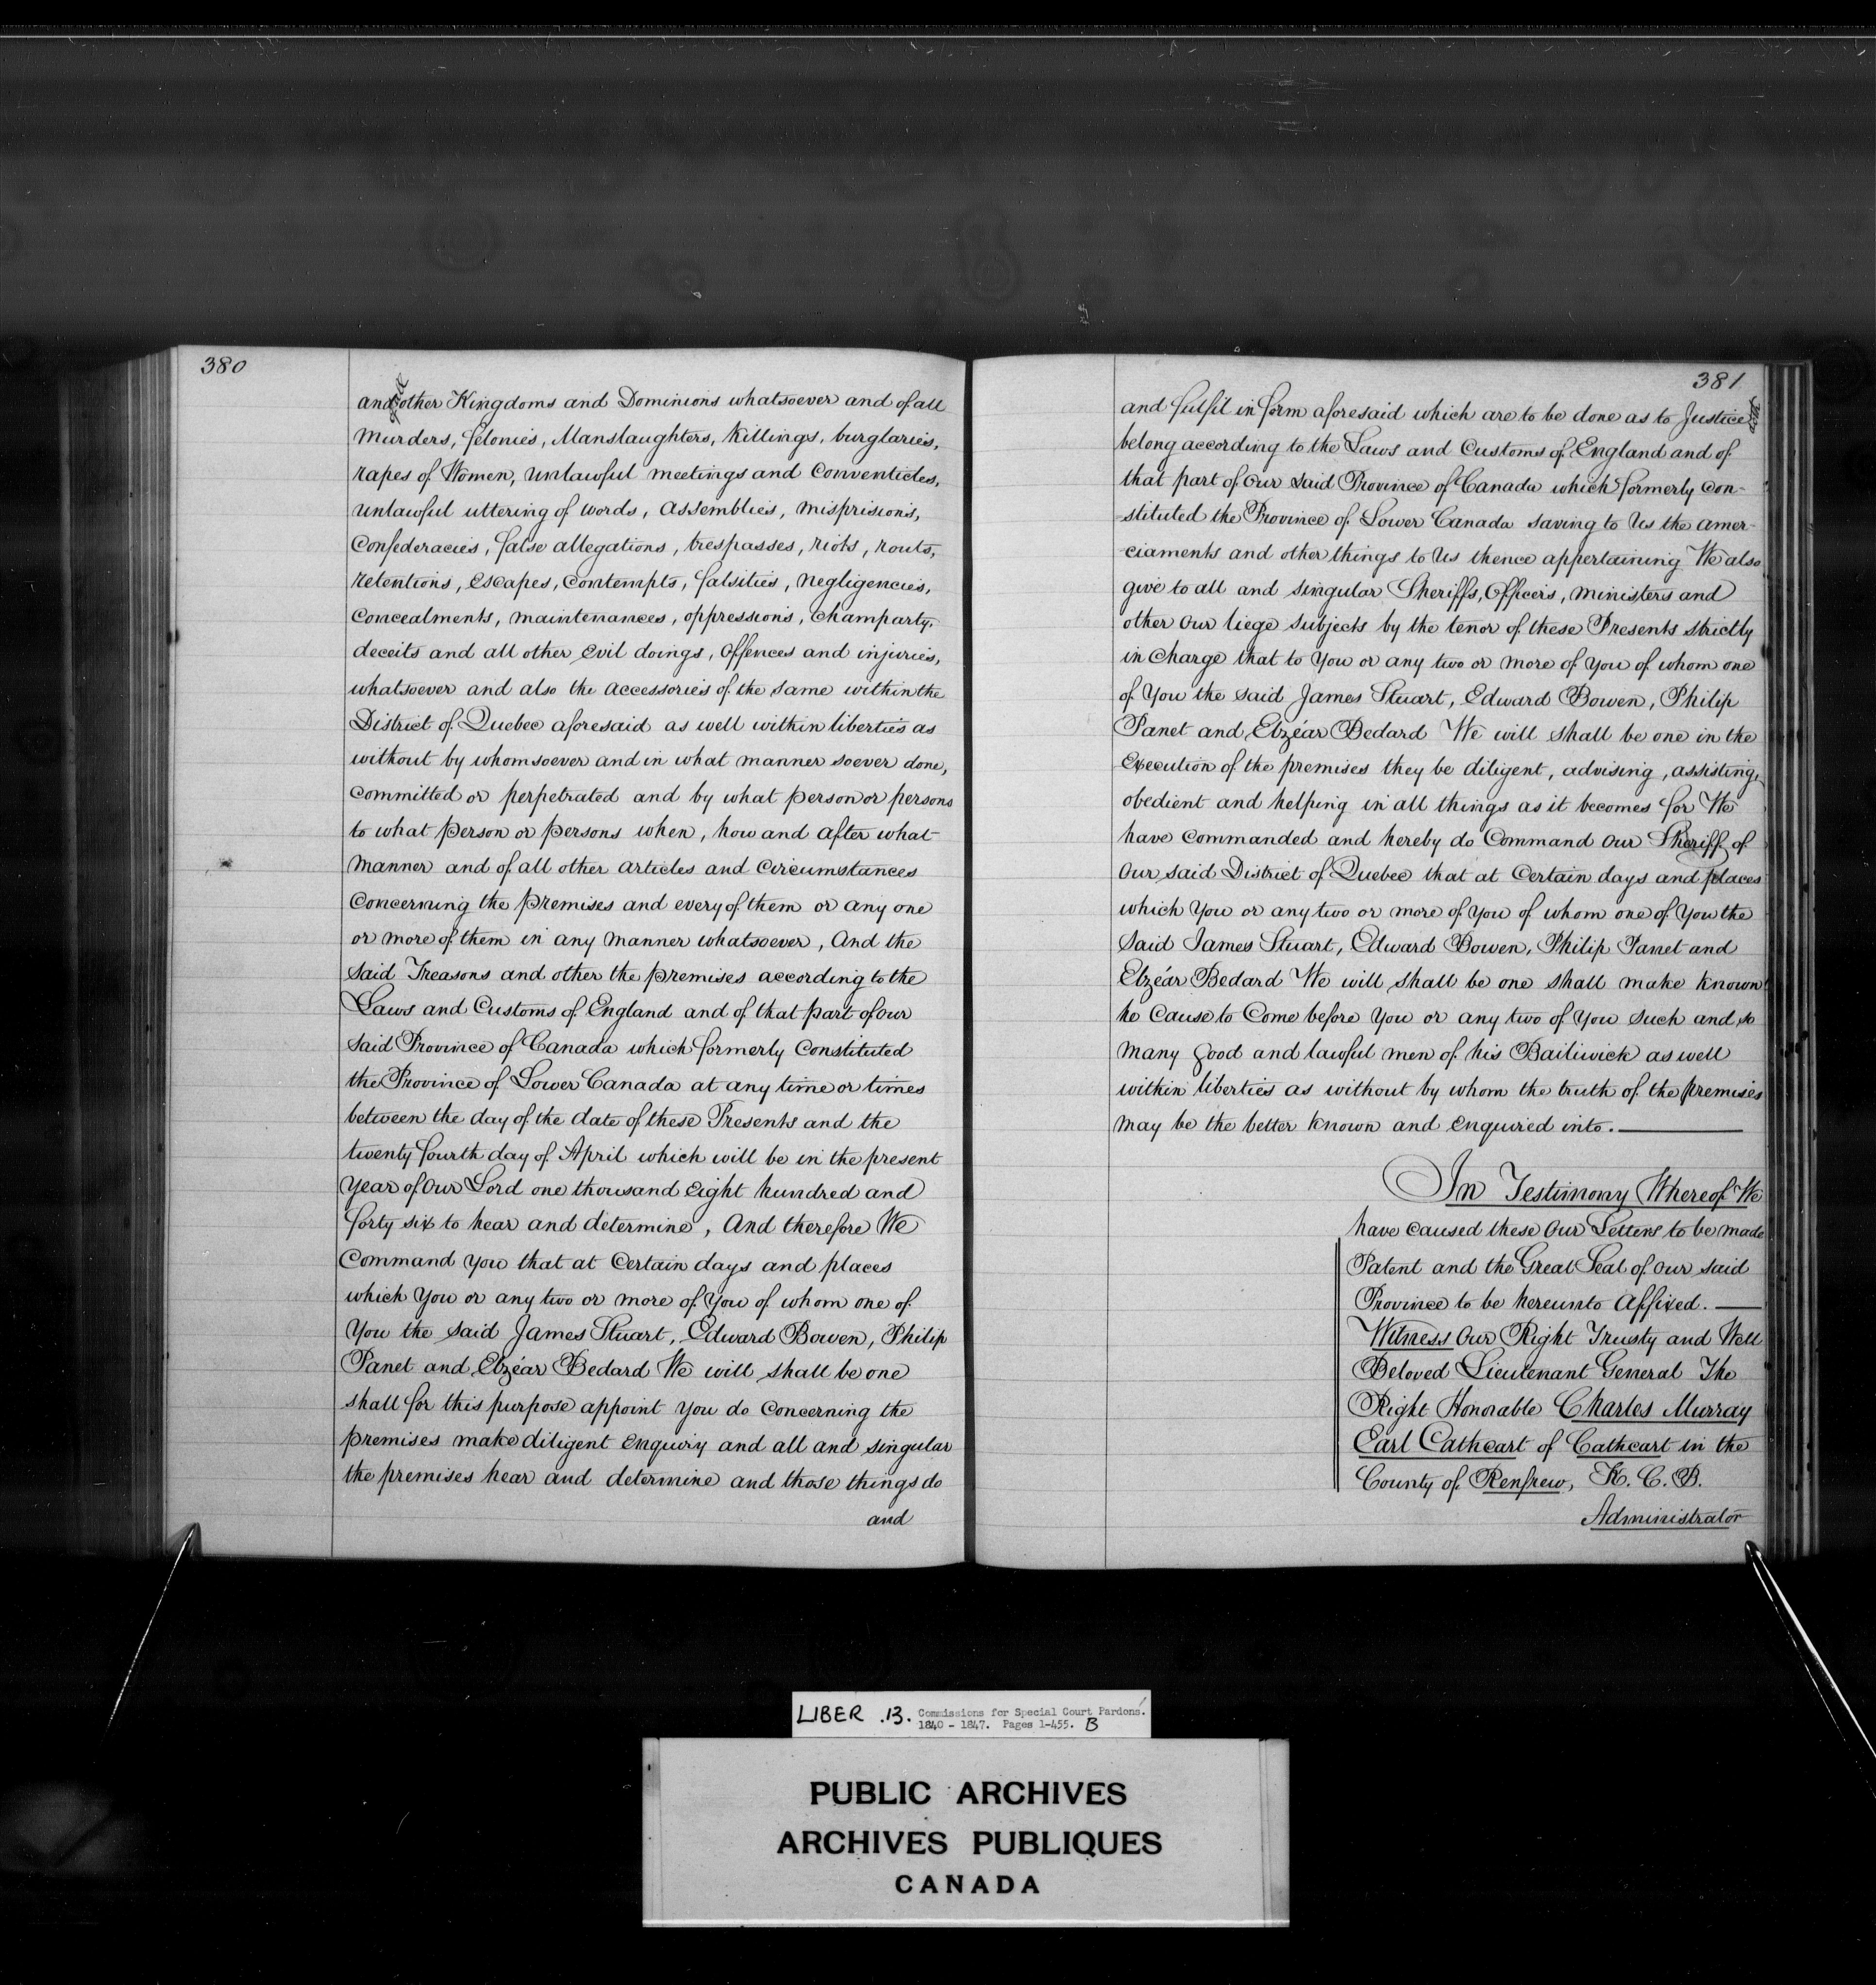 380
and other Kingdoms and Dominions whatsoever and of all
Murders, felonies, Manslaughters, Killings, burglaries,
rapes of Women, unlawful meetings and Conventicles,
unlawful uttering of words, Assemblies, misprisions,
Confederacies, false allegations, trespasses, riots, routs,
retentions, escapes, contempts, falsities, negligencies,
concealments, maintenances, oppressions, Champarty,
deceits and all other evil doings, Offences and injuries,
whatsoever and also the accessories of the same within the
District of Quebec aforesaid as well within liberties as
without by whomsoever and in what manner soever done,
committed or perpetrated and by what person or persons
to what person or persons when, how and after what
manner and of all other articles and circumstances
concerning the premises and every of them or any one
or more of them in any manner whatsoever, And the
said Treasons and other the premises according to the
Laws and Customs of England and of that part of our
said Province of Canada which formerly Constituted
the Province of Lower Canada at any time or times
between the day of the date of these Presents and the
twenty fourth day of April which will be in the present
year of Our Lord one thousand eight hundred and
forty six to hear and determine, And therefore We
Command You that at Certain days and places
which You or any two or more of You of whom one of
You the said James Stuart, Edward Bowen, Philip
Panet and Elzéar Bedard We will shall be one
shall for this purpose appoint You do concerning the
premises make diligent enquiry and all and singular
the premises hear and determine and those things do
and
381
and fulfil in form aforesaid which are to be done as to Justice
belong according to the Laws and Customs of England and of
that part of Our said Province of Canada which formerly con-
-stituted the Province of Lower Canada saving to Us the amer-
-ciaments and other things to Us thence appertaining We also
give to all and singular Sheriffs, Officers, ministers and
other Our liege subjects by the tenor of these Presents strictly
in Charge that to You or any two or more of You of whom one
of You the said James Stuart, Edward Bowen, Philip
Panet and Elzéar Bedard We will shall be one in the
Execution of the premises they be diligent, advising, assisting,
obedient and helping in all things as it becomes for We
have commanded and hereby do Command Our Sheriff of
Our said District of Quebec that at Certain days and places
which You or any two or more of You of whom one of You the
said James Stuart, Edward Bowen, Philip Panet and
Elzéar Bedard We will shall be one shall make known
he Cause to Come before You or any two of You such and so
many good and lawful men of his Bailiwick as well
within liberties as without by whom the truth of the premises
may be the better known and enquired into.
In Testimony Whereof We
have caused these Our Letters to be made
Patent and the Great Seal of Our said
Province to be hereunto Affixed.
Witness Our Right Trusty and Well
Beloved Lieutenant General The
Right Honorable Charles Murray
Earl Cathcart of Cathcart in the
County of Renfrew, K.C.B.
Administrator
LIBER .13. Commissions for Special Court Pardons.
1840 - 1847. Pages 1-455. B
PUBLIC ARCHIVES
ARCHIVES PUBLIQUES
CANADA